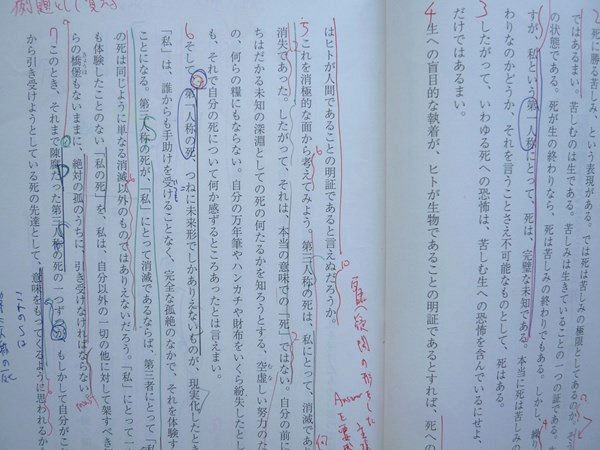 2 死に勝る苦しみ、という表現がある。では死は苦しみの極限としてあるのか。そう
ではあるまい。苦しむのは生である。苦しみは生きていることの一つの証である。死
の状態である。死が生の終わりなら、死は苦しみの終わりでもある。しかし、繰り
すが、私という第一人称にとって、死は、完璧な未知である。本当に死は苦しみの
わりなのかどうか、それを言うことさえ不可能なものとして、死はある。
3 したがって、いわゆる死への恐怖は、苦しむ生への恐怖を含んでいるにせよ、
だけではあるまい。
4 生への盲目的な執着が、ヒトが生物であることの明証であるとすれば、死への
はヒトが人間であることの明証であると言えぬだろうか。
10
反語
疑問の形をした主張
Answer
を要
5 これを消極的な面から考えてみよう。第三人称の死は、私にとって、消滅であり
消失であった。したがって、それは、本当の意味での「死」ではない。自分の前に
ちはだかる未知の深淵としての死の何たるかを知ろうとする、空虚しい努力のな
の、何らの糧にもならない。自分の万年筆やハンカチや財布をいくら紛失したとし
も、それで自分の死について何か感ずるところあったとは言えまい。
6 そして、第一人称の死、つねに未来形でしかありえないものが、現実化したとき
「私」は、誰からも手助けを受けることなく、完全な孤絶のなかで、それを体験す
ことになる。第三人称の死が、「私」にとって消滅であるならば、第三者にとって「私
の死は同じように単なる消滅以外のものではありえないだろう。「私」にとって一
も体験したことのない「私の死」を、私は、自分以外の一切の他に対して架すべき
らの橋堡もないままに、絶対の孤のうちに、引き受けなければならない。
must
7 このとき、それまで陳腐だった第三人称の死の一つずつが、もしかして自分がこ
から引き受けようとしている死の先達として、意味をもってくるように思われるか
例題として覚え